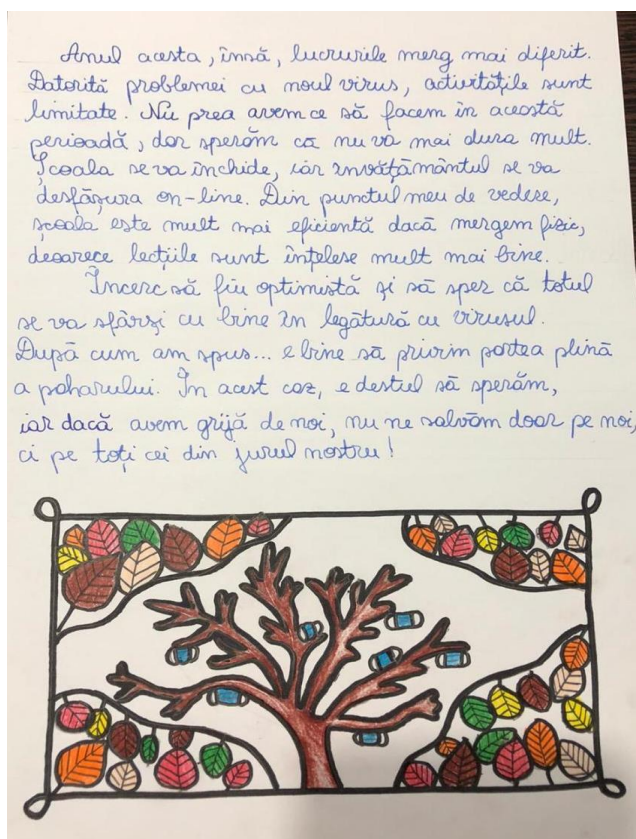 Anul acesta, însă, lucrurile merg mai diferit.
Datorită problemei cu noul virus, activitățile sunt
limitate. Nu prea avem ce să facem în această
perioadă, dar sperăm că nu va mai dura mult.
Școala se va închide, iar învățământul se va
desfășura on-line. Din punctul meu de vedere,
școala este mult mai eficientă dacă mergem fizic,
deoarece lecțiile sunt înțelese mult mai bine.
Încerc să fiu optimistă și să sper că totul
se va sfârși cu bine în legătură cu virusul.
După cum am spus... e bine să privim partea plină
a paharului. În acest caz, e destul să sperăm,
iar dacă avem grijă de noi, nu ne salvăm doar pe noi,
ci pe toți cei din jurul nostru!